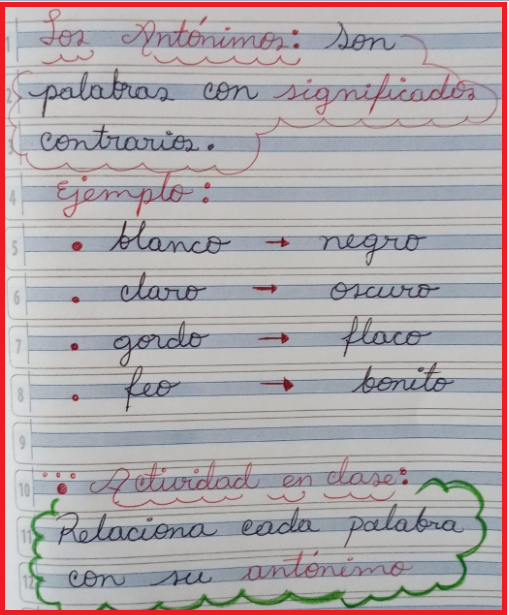 1 Los Antónimos: son
2 palabras con significados
3 contrarios.
4 Ejemplo:
5 • blanco → negro
6 • claro → oscuro
7 • gordo → flaco
8 • feo → bonito
9
10 Actividad en clase:
11 Relaciona cada palabra
12 con su antónimo